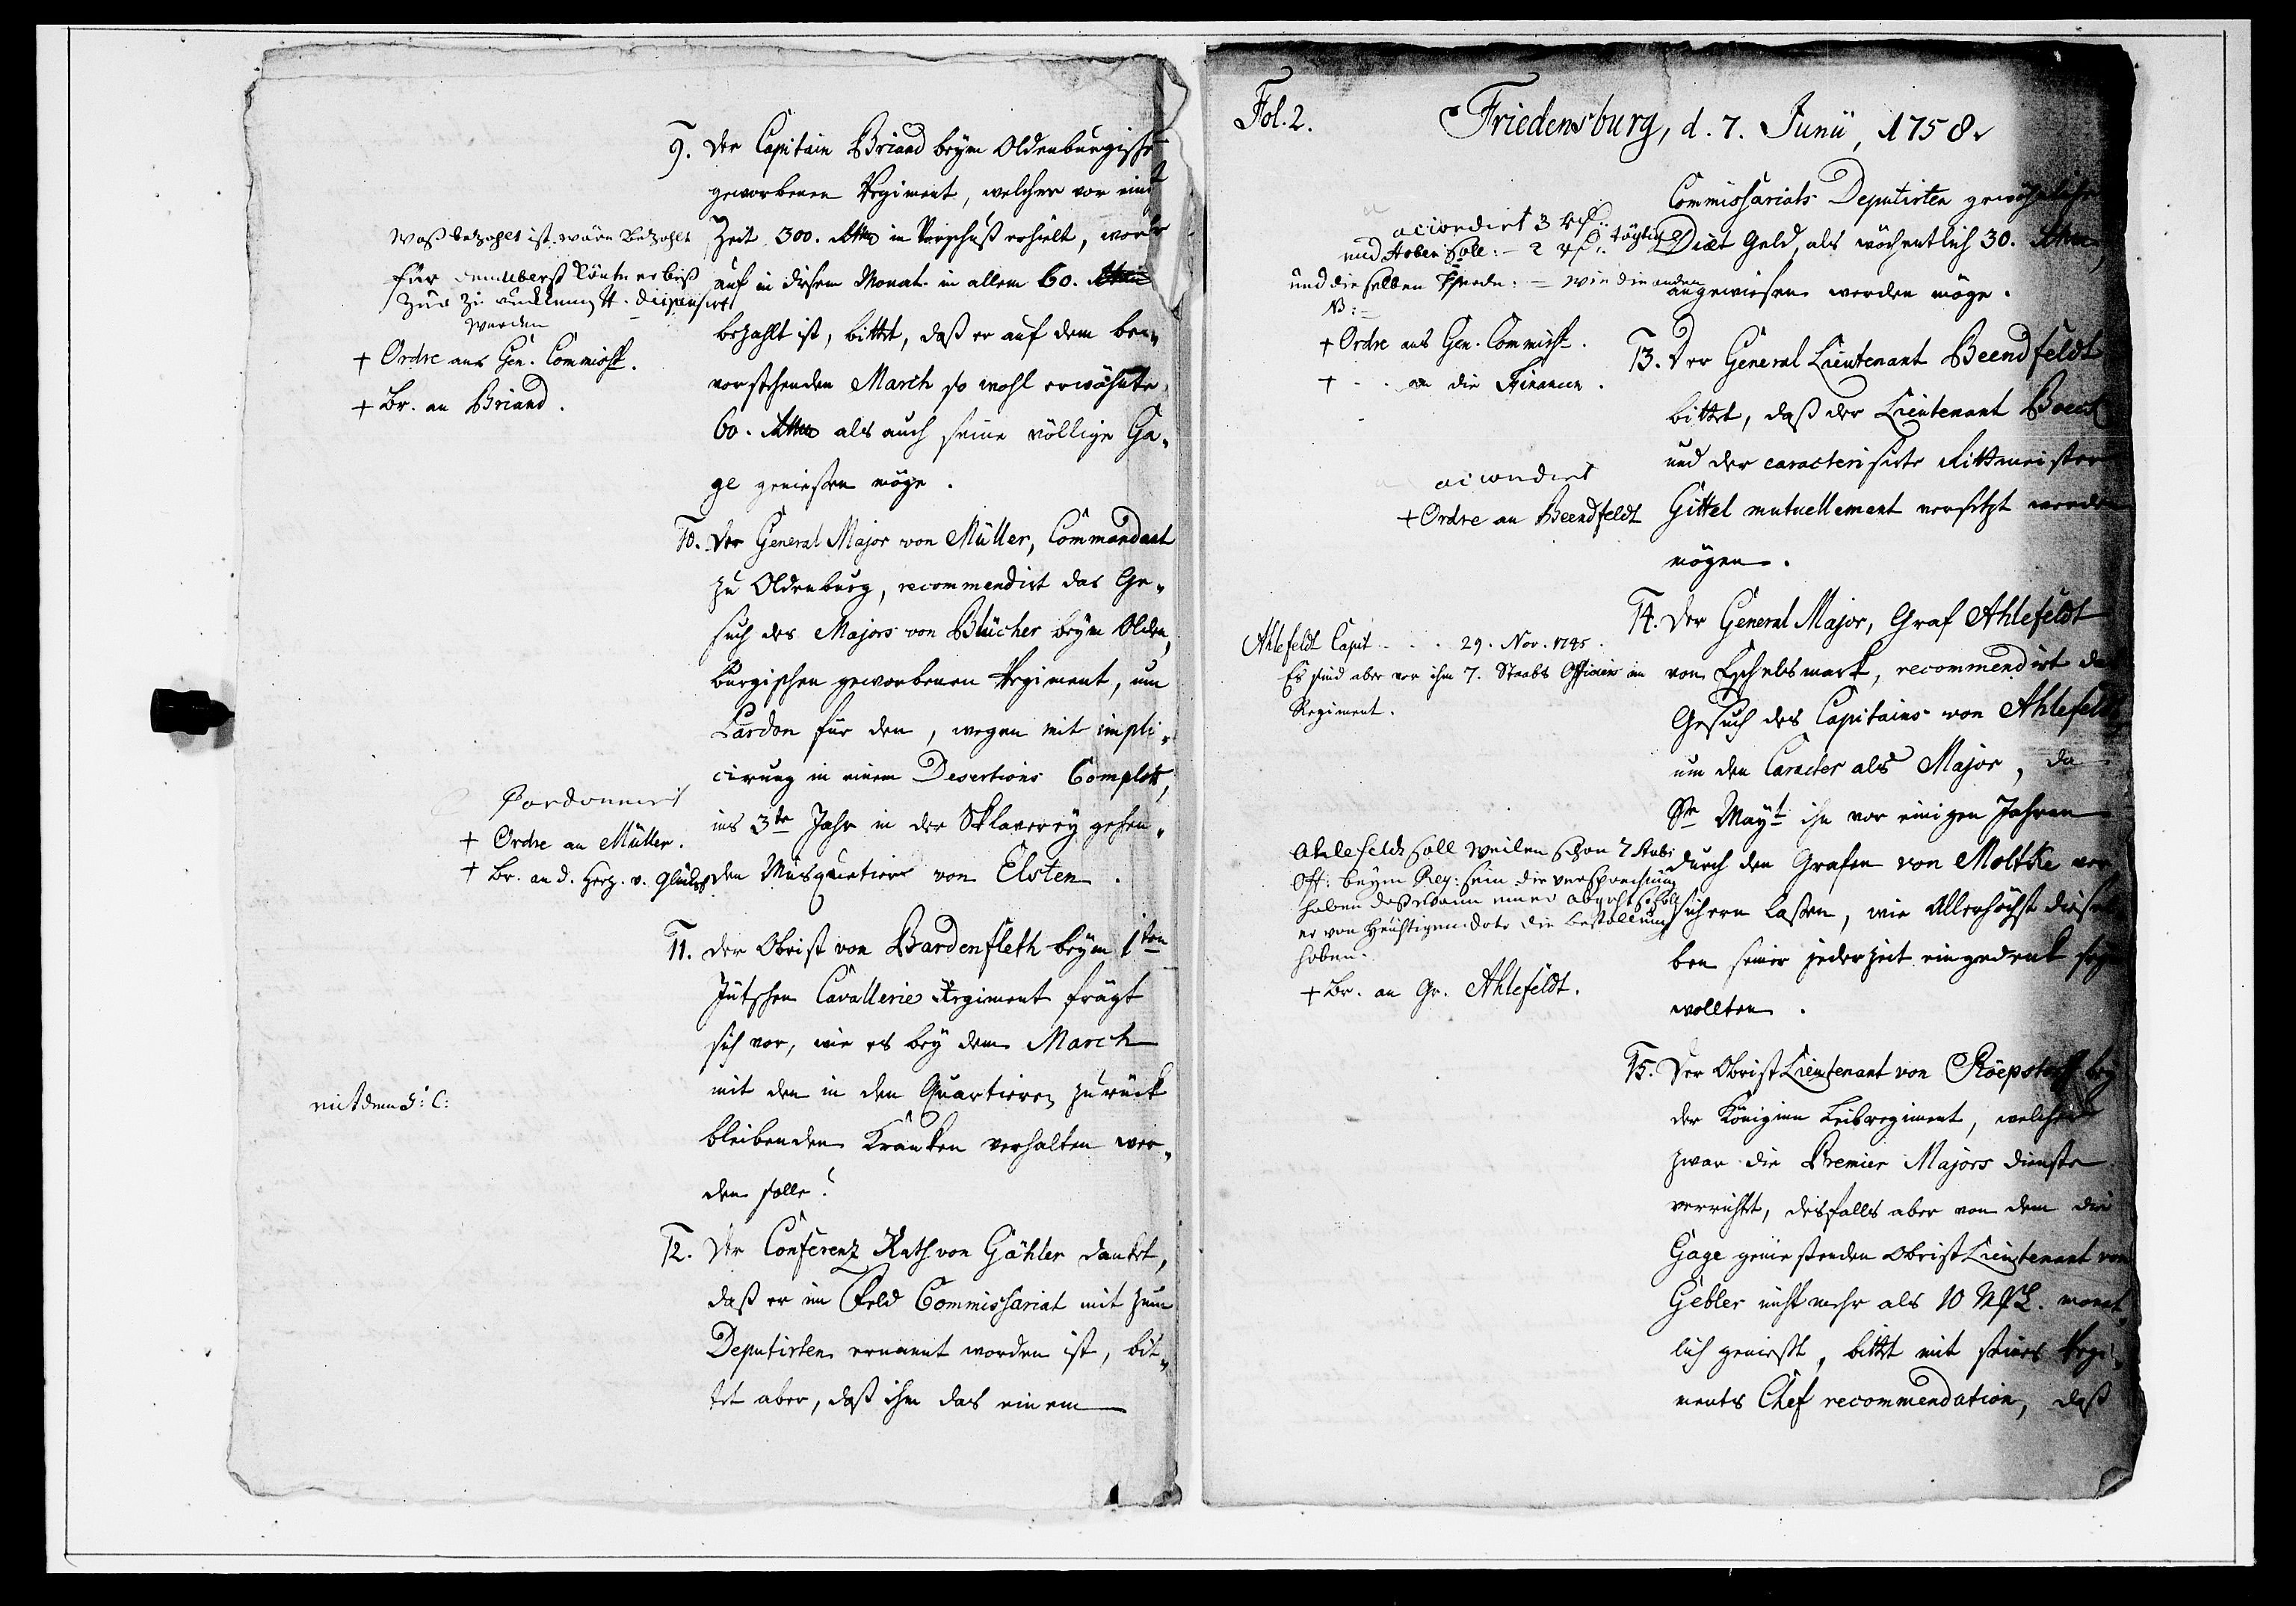 9. Der Capitain Briand beym Oldenburgische
geworbenen Regiment, welcher vor ein
Zeit 300. Rthlr in Vorschuß erhielt, wor
auf in diesem Monat in allem 60. Rthlr
bezahlt ist, bittet, daß er auf dem be„
vorstehenden March so wohl erwöhnte
60. Rthlr als auch seine völlige Ga„
ge genießen möge.
Waß bezahlt ist wäre bezahlt
für könte er biß
zur dispensirt
werden
+ Ordre ans Gen. Commiss.
+ Br. an Briand.
10. Der General Major von Müller, Commandant
zu Oldenburg, recommendirt das Ge„
such des Majors von Blücher beym Olden„
burgischen geworbenen Regiment, um
Pardon für den, wegen mit impli„
cirung in einem Desertions Complott,
ins 3te Jahr in der Sklaverey gehen„
den Musquetier von Elsten.
Pardonnirt
+ Ordre an Müller.
+ Br. an d. Herz. v. Glücks
11. Der Obrist von Bardenfleth beym 1ten
Jütschen Cavallerie Regiment frägt
sich vor, wie es bey dem March
mit den in den Quartieren zurück
bleibenden Kranken verhalten wer„
den solle?
mit dem G: C:
12. Der Conferenz Rath von Gähler danket,
daß er im Feld Commissariat mit zum
Deputirten ernannt worden ist, bit„
tet aber, daß ihm das einem
Fol. 2.
Friedensburg, d. 7. Junii, 1758.
Commissariats Deputirten gewöhnliche
Diæt Geld, als wöchentlich 30. Rthlr,
angewiesen werden möge.
accordirt 3 täglich
und haben soll: 2
und dieselben Pferde: wie die andern
NB:
+ Ordre ans Gen. Commiss.
+ - - an die Financen.
13. Der General Lieutenant Beendfeldt
bittet, daß der Lieutenant
und der caracterisirte Rittmeister
Gittel mutuellement versetzt werden
mögen.
accordirt
+ Ordre an Beendfeldt
14. Der General Major, Graf Ahlefeldt
von Eschelsmark, recommendirt das
Gesuch des Capitains von Ahlefeldt
um den Caracter als Major, da
Se Mayt ihn vor einigen Jahren
durch den Grafen von Moltke ver
sichern laßen, wie Allerhöchst diesel
ben seiner jederzeit eingedenk seyn
wollten.
Ahlefeldt Capit - - . 29. Nov. 1745.
Es sind aber vor ihm 7. Staabs Officiers im
Regiment.
Ahlefeldt soll weilen schon 7 Stabs
Off: beym Reg: sein die versprechung
haben daß wann einer abgeht soll
er von heuhtigen dato die bestallung
haben.
+ Br. an Gr. Ahlefeldt.
15. Der Obrist Lieutenant von Röepstorff bey
der Königinn Leibregiment, welcher
zwar die Premier Majors dienste
verrichtet, desfalls aber von dem die
Gage genießenden Obrist Lieutenant von
Gebler nicht mehr als 10 monat„
lich genießt, bittet mit seines Regi„
ments Chef recommendation, daß